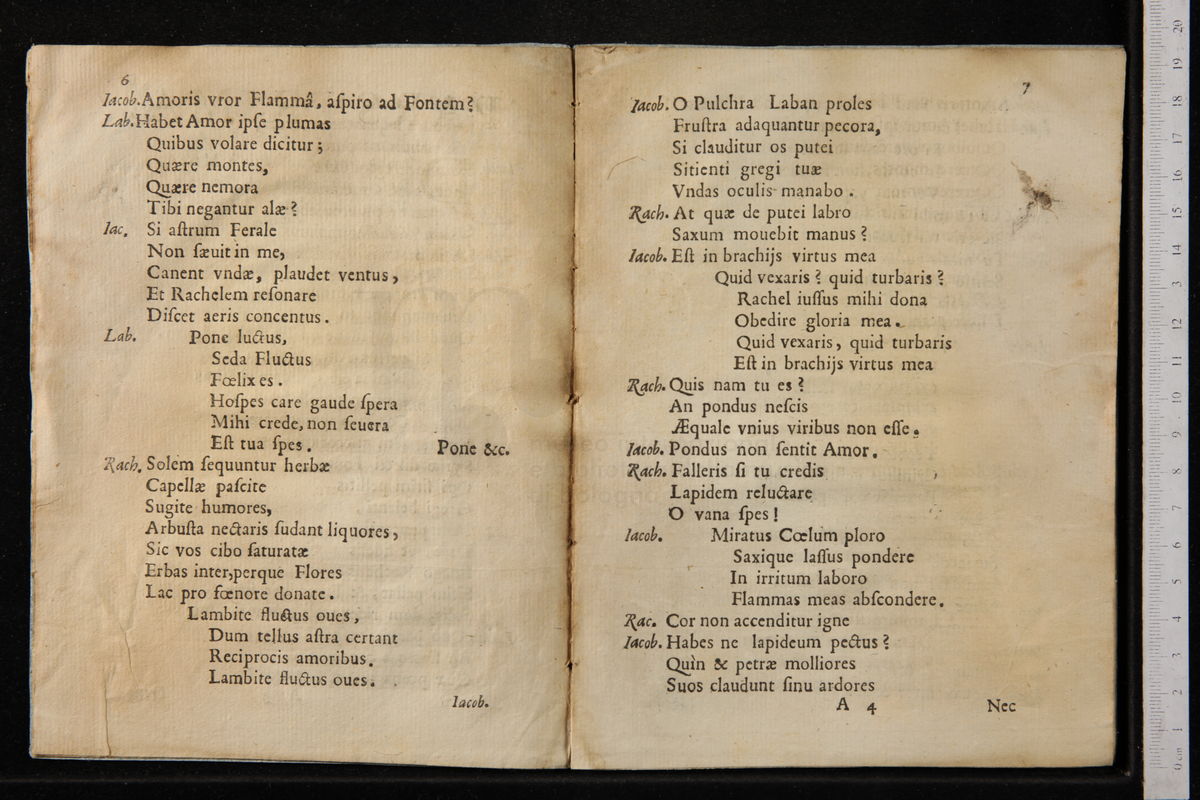 6
Iacob. Amoris vror Flammâ, aſpiro ad Fontem?
Lab. Habet Amor ipſe plumas
Quibus volare dicitur;
Quære montes,
Quære nemora
Tibi negantur alæ?
Iac. Si aſtrum Ferale
Non ſæuit in me,
Canent vndæ, plaudet ventus,
Et Rachelem reſonare
Diſcet aeris concentus.
Lab. Pone luctus,
Seda Fluctus
Fœlix es.
Hoſpes care gaude ſpera
Mihi crede, non ſeuera
Eſt tua ſpes. Pone &c.
Rach. Solem ſequuntur herbæ
Capellæ paſcite
Sugite humores,
Arbuſta nectaris ſudant liquores,
Sic vos cibo ſaturatæ
Erbas inter, perque Flores
Lac pro fœnore donate.
Lambite fluctus oues,
Dum tellus aſtra certant
Reciprocis amoribus.
Lambite fluctus oues.
Iacob.
7
Iacob. O Pulchra Laban proles
Fruſtra adaquantur pecora,
Si clauditur os putei
Sitienti gregi tuæ
Vndas oculis manabo.
Rach. At quæ de putei labro
Saxum mouebit manus?
Iacob. Eſt in brachijs virtus mea
Quid vexaris? quid turbaris?
Rachel iuſſus mihi dona
Obedire gloria mea.
Quid vexaris, quid turbaris
Eſt in brachijs virtus mea
Rach. Quis nam tu es?
An pondus neſcis
Æquale vnius viribus non eſſe.
Iacob. Pondus non ſentit Amor.
Rach. Falleris ſi tu credis
Lapidem reluctare
O vana ſpes!
Iacob. Miratus Cœlum ploro
Saxique laſſus pondere
In irritum laboro
Flammas meas abſcondere.
Rac. Cor non accenditur igne
Iacob. Habes ne lapideum pectus?
Quìn & petræ molliores
Suos claudunt ſinu ardores
A 4 Nec
0 cm 1 2 3 4 5 6 7 8 9 10 11 12 13 14 15 16 17 18 19 20